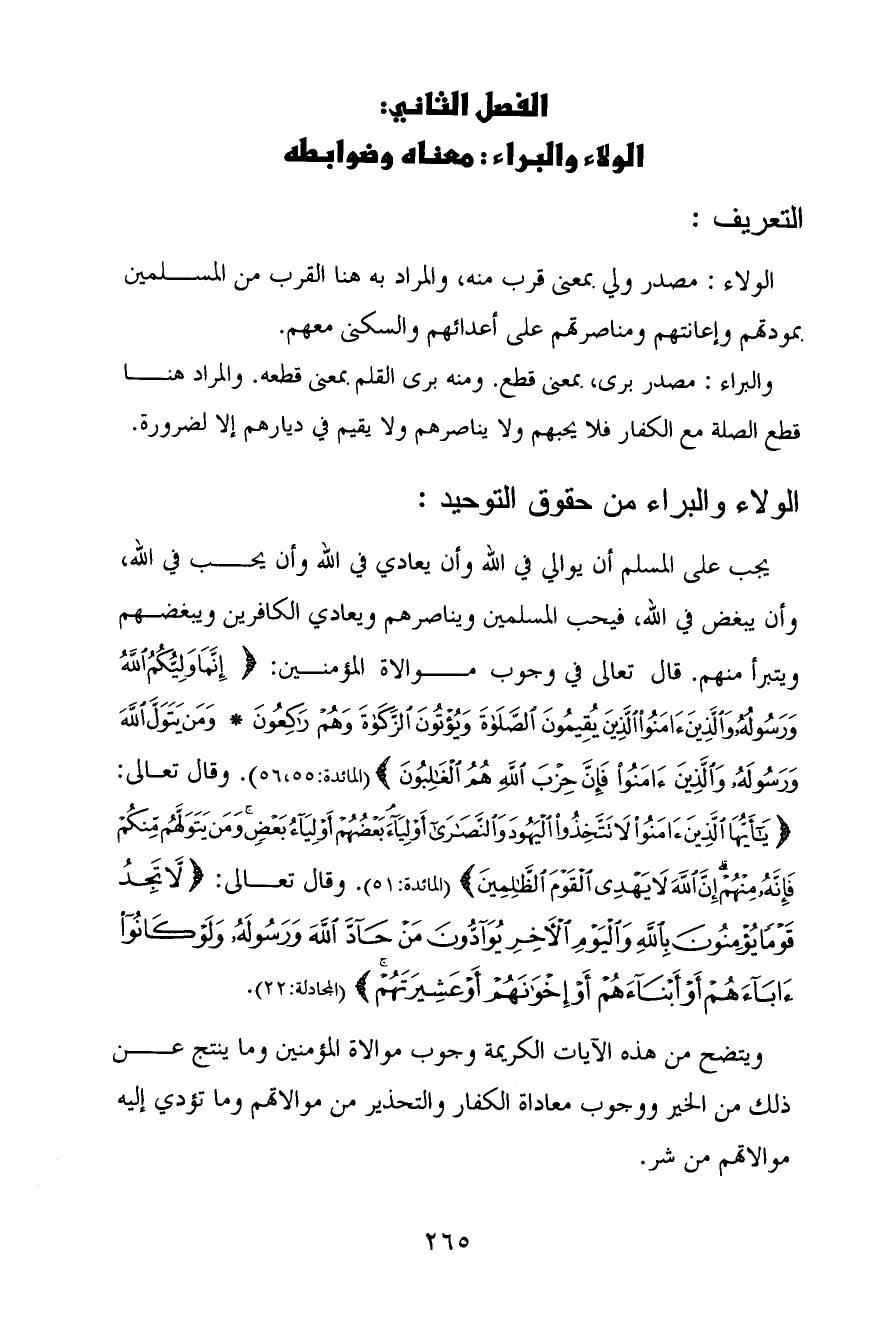 الفصل الثاني:
الولاء والبراء: معناه وضوابطه
التعريف :
الولاء : مصدر ولي بمعنى قرب منه، والمراد به هنا القرب من المسلمين
بمودتهم وإعانتهم ومناصرتهم على أعدائهم والسكنى معهم.
والبراء : مصدر برى، بمعنى قطع. ومنه برى القلم بمعنى قطعه. والمراد هنا
قطع الصلة مع الكفار فلا يحبهم ولا يناصرهم ولا يقيم في ديارهم إلا لضرورة.
الولاء والبراء من حقوق التوحيد :
يجب على المسلم أن يوالي في الله وأن يعادي في الله وأن يحب في الله،
وأن يبغض في الله، فيحب المسلمين ويناصرهم ويعادي الكافرين ويبغضهم
ويتبرأ منهم. قال تعالى في وجوب موالاة المؤمنين: ﴿ إِنَّمَا وَلِيُّكُمُ ٱللَّهُ
وَرَسُولُهُۥ وَٱلَّذِينَ ءَامَنُوا۟ ٱلَّذِينَ يُقِيمُونَ ٱلصَّلَوٰةَ وَيُؤْتُونَ ٱلزَّكَوٰةَ وَهُمْ رَٰكِعُونَ * وَمَن يَتَوَلَّ ٱللَّهَ
وَرَسُولَهُۥ وَٱلَّذِينَ ءَامَنُوا۟ فَإِنَّ حِزْبَ ٱللَّهِ هُمُ ٱلْغَـٰلِبُونَ ﴾ (المائدة:٥٥،٥٦). وقال تعالى:
﴿ يَـٰٓأَيُّهَا ٱلَّذِينَ ءَامَنُوا۟ لَا تَتَّخِذُوا۟ ٱلْيَهُودَ وَٱلنَّصَـٰرَىٰٓ أَوْلِيَآءَ ۘ بَعْضُهُمْ أَوْلِيَآءُ بَعْضٍ ۚ وَمَن يَتَوَلَّهُم مِّنكُمْ
فَإِنَّهُۥ مِنْهُمْ ۗ إِنَّ ٱللَّهَ لَا يَهْدِى ٱلْقَوْمَ ٱلظَّـٰلِمِينَ ﴾ (المائدة:٥١). وقال تعالى: ﴿ لَّا تَجِدُ
قَوْمًا يُؤْمِنُونَ بِٱللَّهِ وَٱلْيَوْمِ ٱلْـَٔاخِرِ يُوَآدُّونَ مَنْ حَآدَّ ٱللَّهَ وَرَسُولَهُۥ وَلَوْ كَانُوٓا۟
ءَابَآءَهُمْ أَوْ أَبْنَآءَهُمْ أَوْ إِخْوَٰنَهُمْ أَوْ عَشِيرَتَهُمْ ۚ ﴾ (المجادلة:٢٢).
ويتضح من هذه الآيات الكريمة وجوب موالاة المؤمنين وما ينتج عن
ذلك من الخير ووجوب معاداة الكفار والتحذير من موالاتهم وما تؤدي إليه
موالاتهم من شر.
٢٦٥